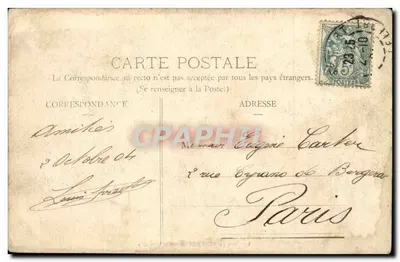 CARTE POSTALE
La Correspondance au recto n'est pas acceptée par tous les pays étrangers.
(Se renseigner à la Poste)
CORRESPONDANCE
ADRESSE
Amitiés
2 Octobre 04
Monsieur Eugène Carlier
2 rue Cyrano de Bergerac
Paris
CPAPHIL
23-15
2-10